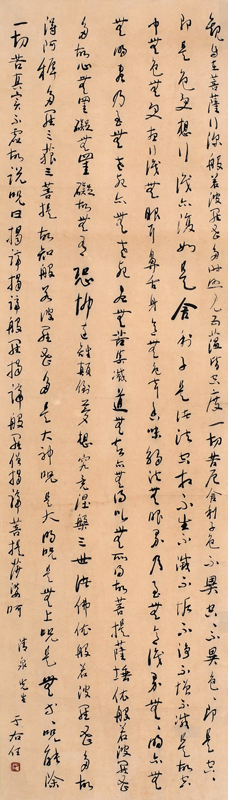 觀自在菩薩行深般若波羅蜜多時照見五蘊皆空度一切苦厄舍利子色不異空々不異色々即是空々
即是色受想行識亦復如是舍利子是諸法空相不生不滅不垢不淨不增不減是故空
中無色無受想行識無眼耳鼻舌身意無色聲香味觸法無眼界乃至無意識界無無明亦無
無明盡乃至無老死亦無老死盡無苦集滅道無智亦無得以無所得故菩提薩埵依般若波羅蜜
多故心無罣礙無罣礙故無有恐怖遠離顛倒夢想究竟涅槃三世諸佛依般若波羅蜜多故
得阿耨多羅三藐三菩提故知般若波羅蜜多是大神呪是大明呪是無上呪是無等々呪能除
一切苦真實不虛故說呪曰揭諦揭諦般羅揭諦般羅僧揭諦菩提莎婆呵
清泉先生
于右任